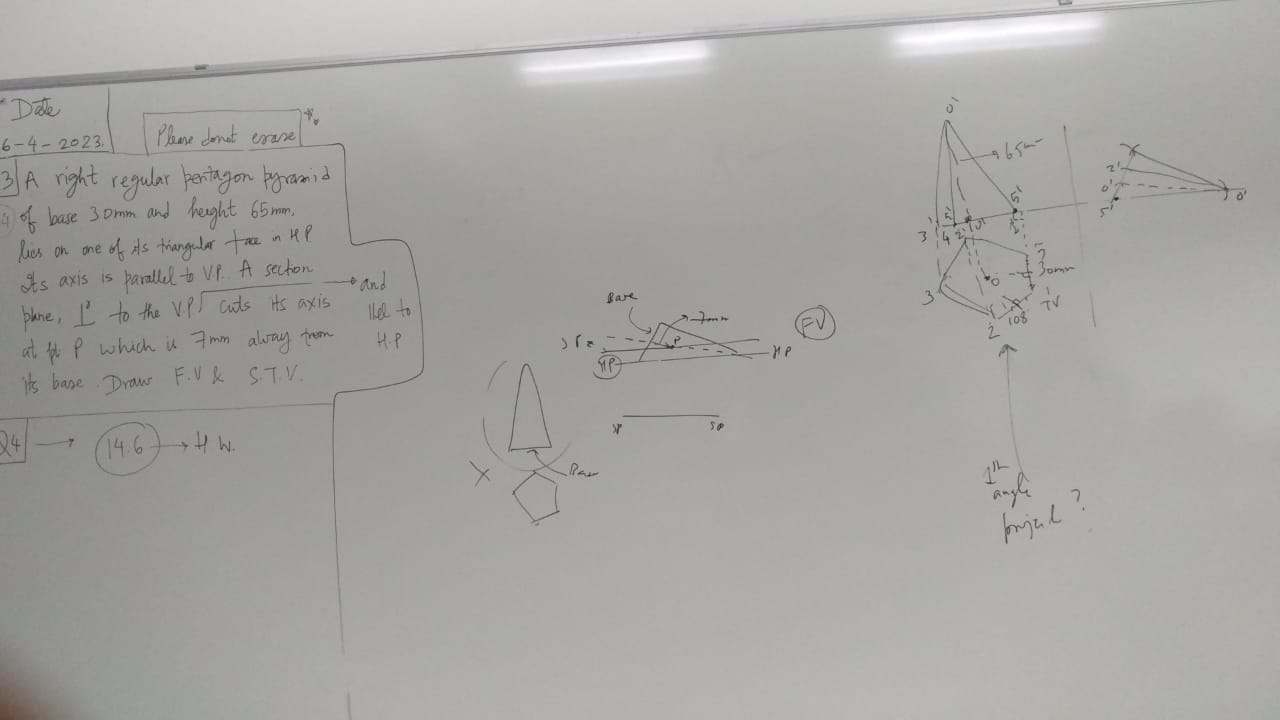 Date
6-4-2023.
Please donot erase
3 A right regular pentagon pyramid
4 of base 30mm and height 65mm,
lies on one of its triangular face in HP
Its axis is parallel to VP. A section
plane, ⊥r to the VP cuts its axis
and
llel to
H.P
at pt P which is 7mm away from
its base. Draw F.V & S.T.V.
Q4 → 14.6 → H W.
Base
7mm
P
HP
HP
FV
SP
SP
X
Base
o'
65mm
3'
4'
2'
5'
1'
o
30mm
3
2
108
1
TV
1th
angle
2'
o'
5'
o'